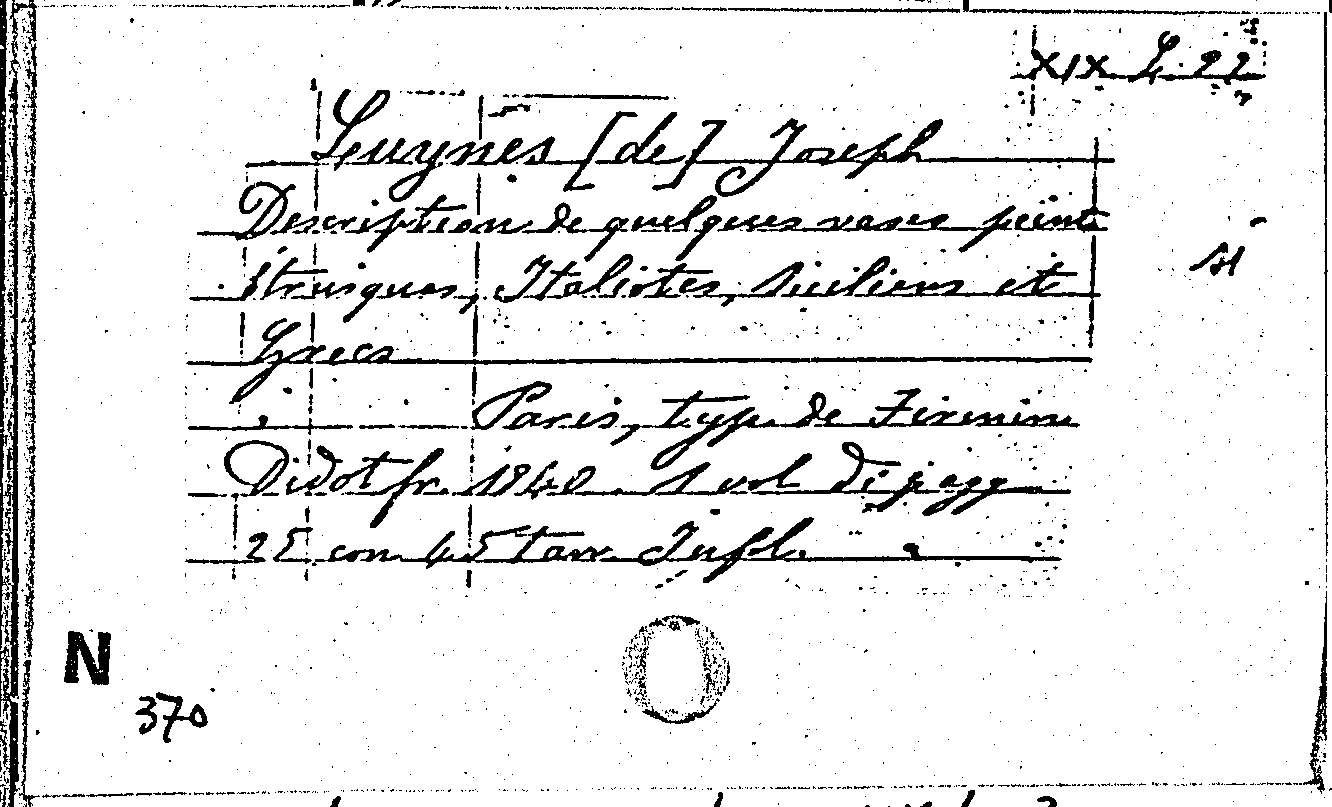 XIX L. 22
Luynes [de] Joseph
Description de quelques vases peints
étrusques, Italiotes, Siciliens et
Grecs
Paris, typ. de Firmin
Didot fr. 1840. 1 vol di pagg
25 con 45 tavv. In fol.
N
370